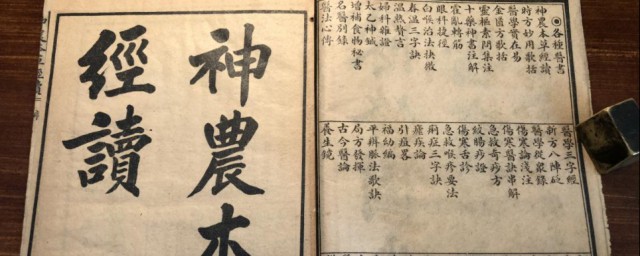 各種醫書
神農本草經讀
時方妙用歌括
醫學實在易
金匱方歌括
靈樞素問集注
十藥神書註解
霍亂轉筋
眼科捷徑
白喉治法抉微
春溫三字訣
溫熱贅言
婦科雜證
太乙神鍼
增補食物秘書
名醫別錄
醫法心傳
醫學三字經
新方八陣砭
醫學從衆錄
傷寒論淺注
傷寒醫訣串解
急救奇痧方
絞腸痧證
傷寒舌診
急救喉疹要法
痢症三字訣
瘧疾論
引痘略
福幼編
平辨脈法歌訣
局方發揮
古今醫論
養生鏡
神農本
經讀